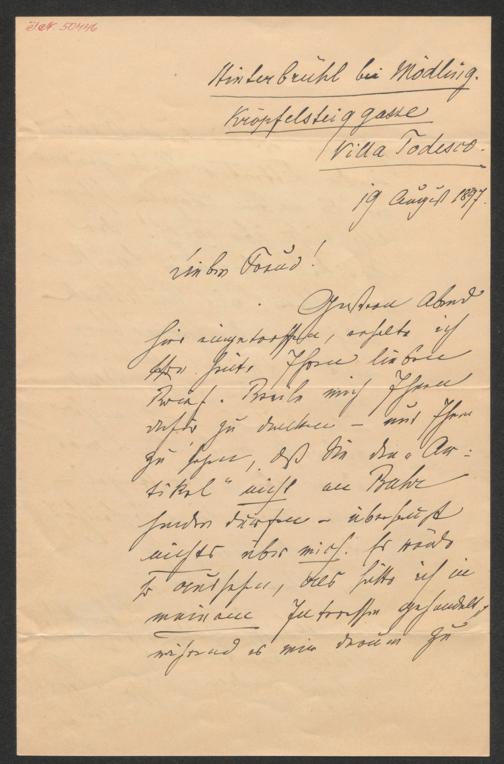 J.N. 50446
Hinterbrühl bei Mödling.
Kröpfelsteiggasse
Villa Todesco.
19 August 1897.
Lieber Freund!
Gestern Abend
hier eingetroffen, erhalte ich
heute Ihren lieben
Brief. Beeile mich Ihnen
dafür zu danken – und Ihnen
zu sagen, daß Sie den „Ar-
tikel" nicht an Bahr
senden dürfen – überhaupt
nichts über mich. Es würde
so aussehen, als hätte ich in
meinem Interesse gehandelt,
während es mir darum zu